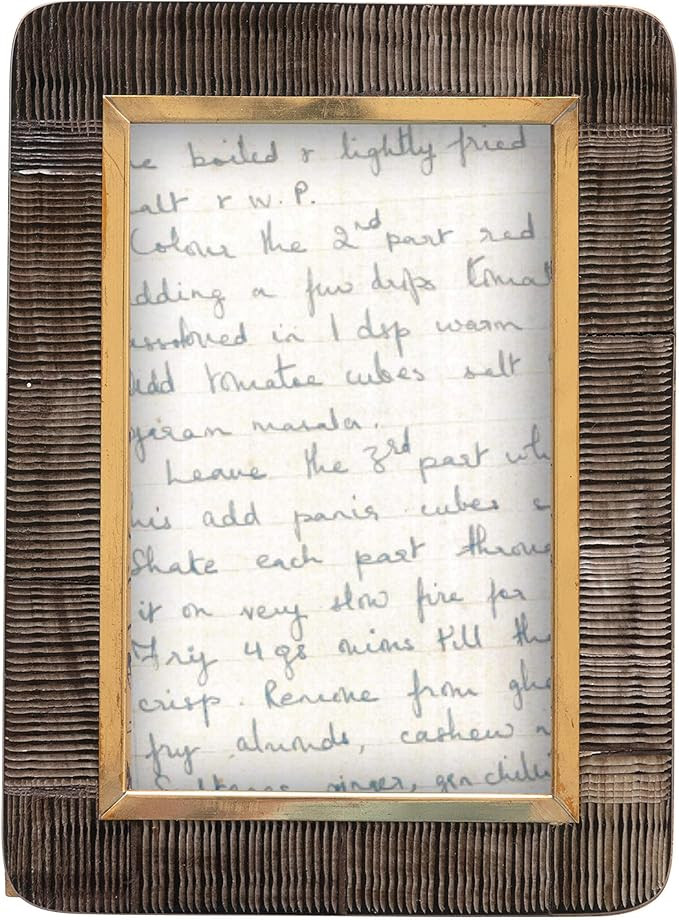 e boiled & lightly fried
alt & W.P.
Colour the 2nd part red
dding a few drops tomat
ssolved in 1 dsp warm
Add tomatoe cubes salt
garam masala.
Leave the 3rd part wh
his add panir cubes
Shake each part throu
it on very slow fire for
Fry 4 gs onions till th
crisp. Remove from ghe
fry almonds, cashew n
Sultanas ginger, green chilli